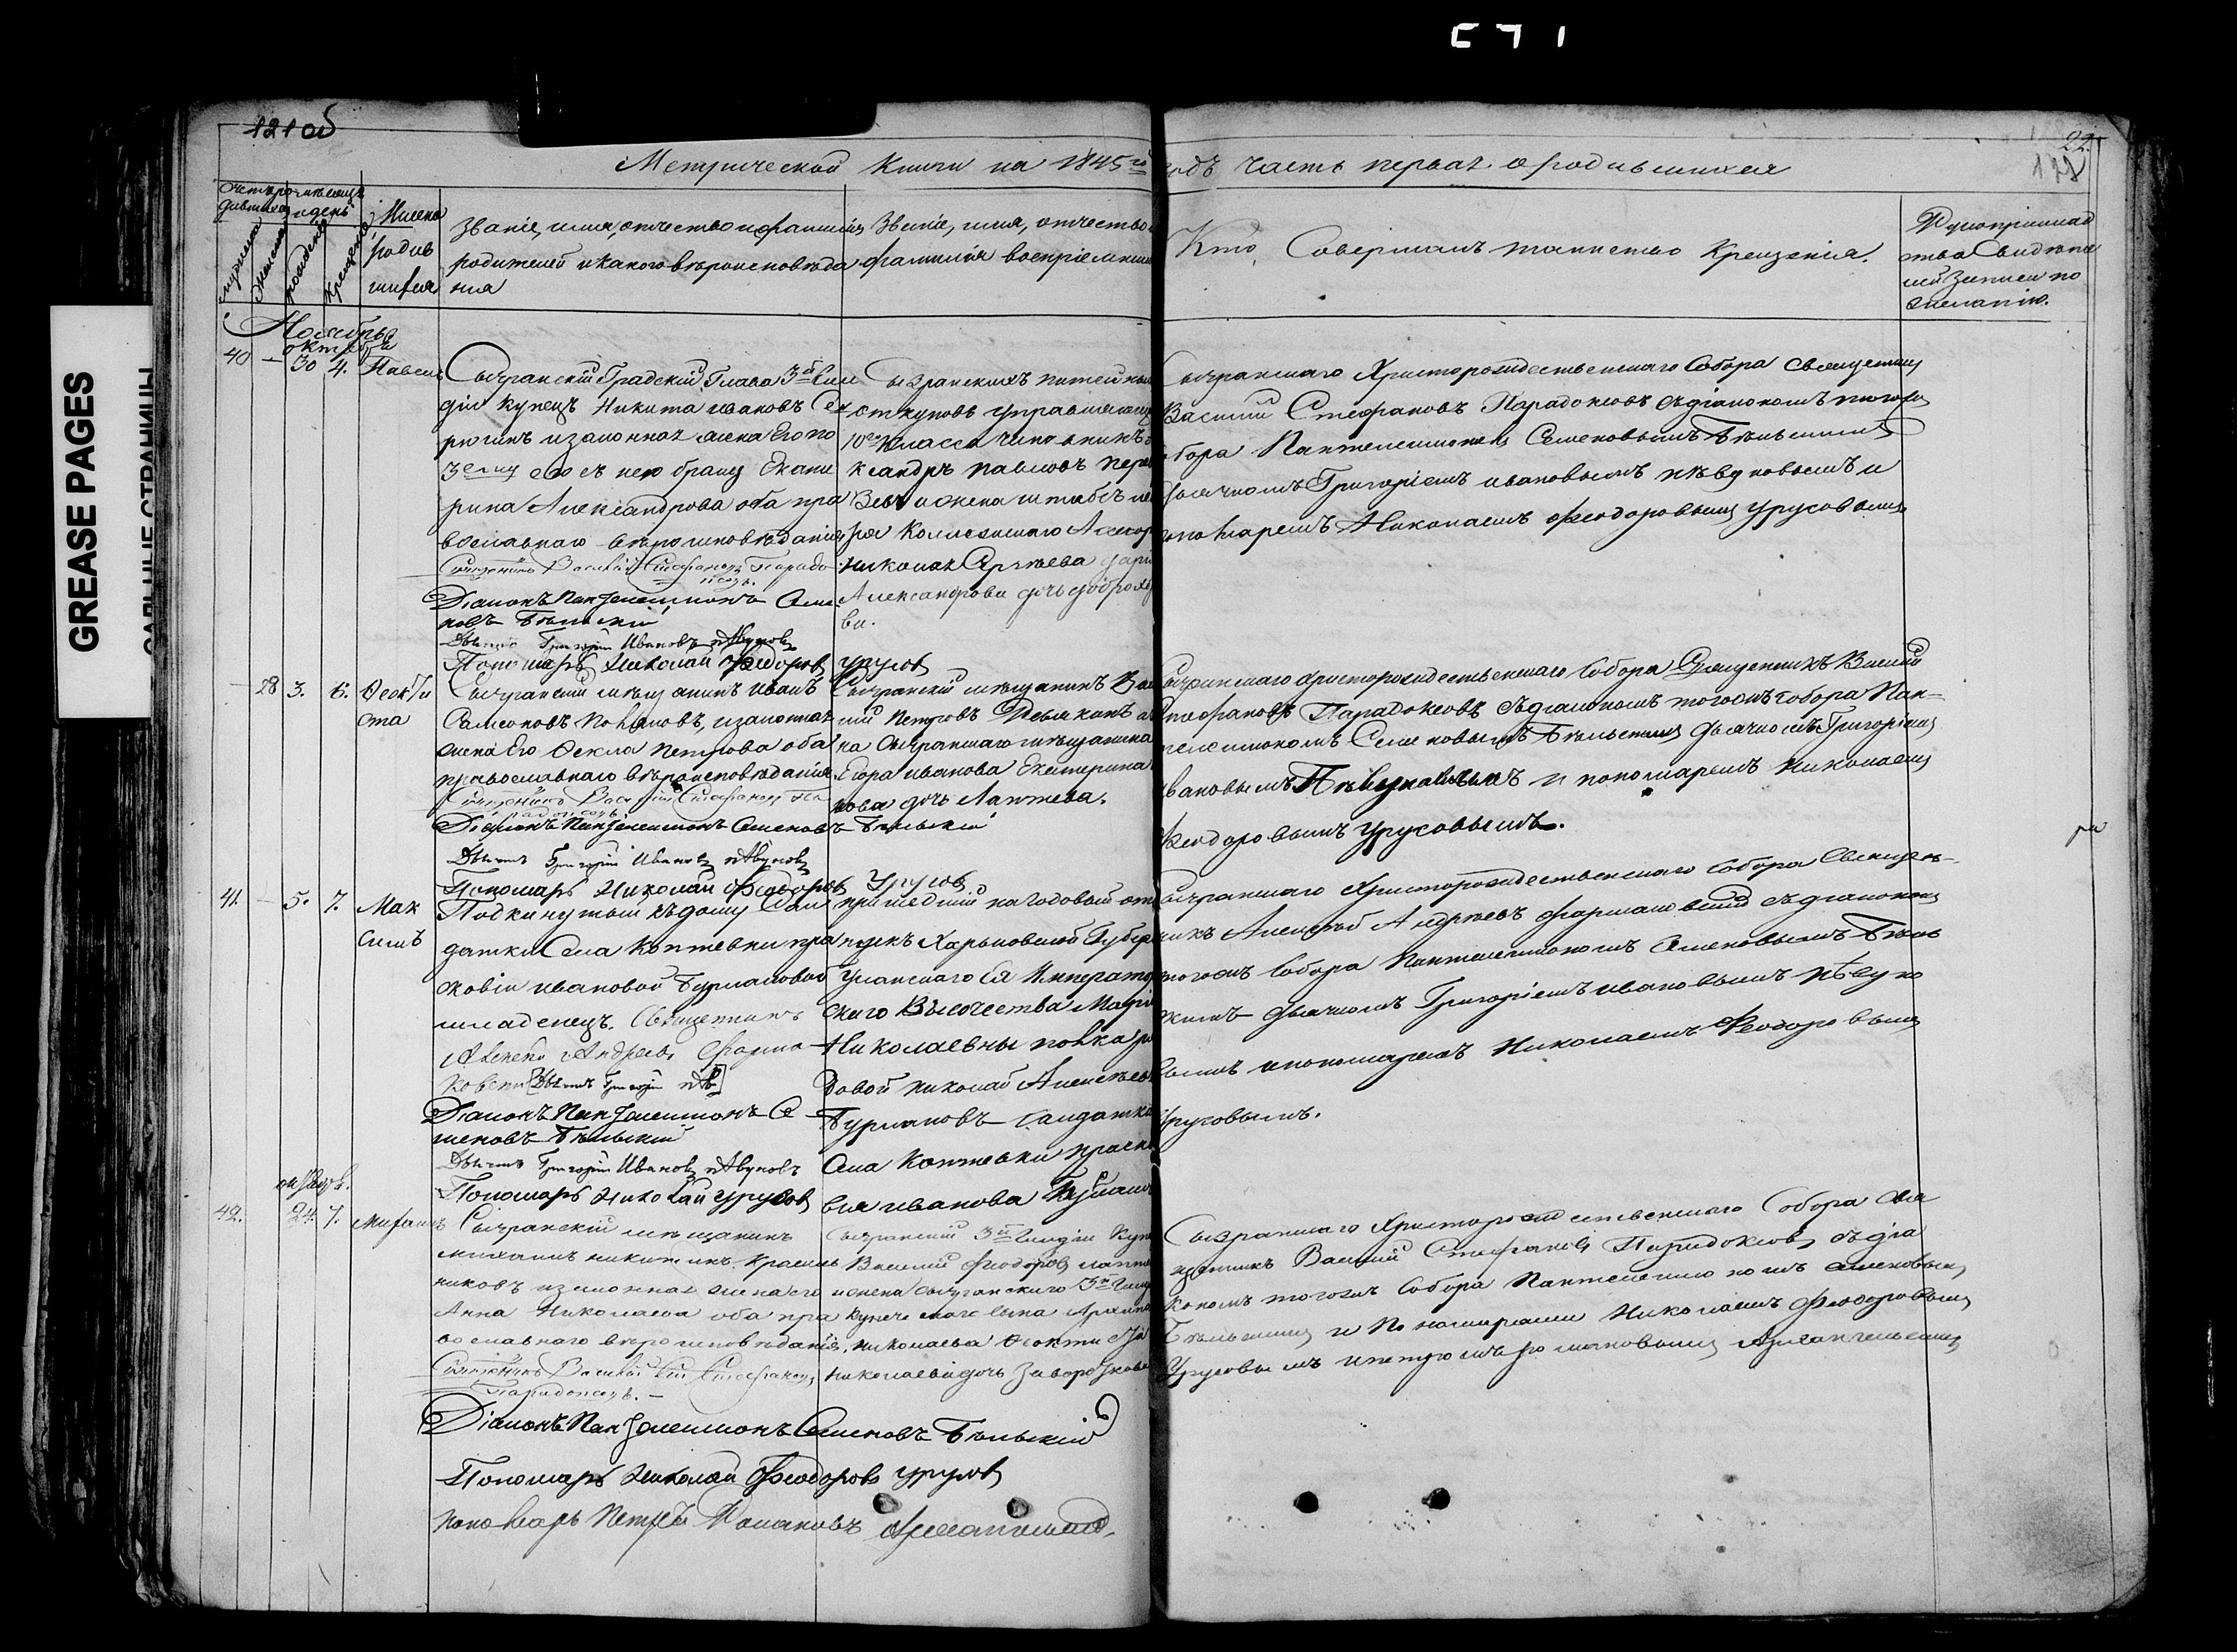 С 7 1
GREASE PAGES
САЛЬНЫЕ СТРАНИЦЫ
121 об
22.
Метрической книги на 1845 й
годъ часть первая о родившихся
Имена
родив
шихся
Званіе, имя, отчество и фамилія
родителей и какого вѣроисповѣда
нія
Званіе, имя, отчество
фамилія воспріемник
Кто Совершалъ таинство Крещенія.
Рукоприклад
ство Свидѣте
лей записи по
желанію.
Ноябрь
октября
40 - 30 4. Павелъ
Сызранскій Градскій Глава 3й Гил
діи купецъ Никита ивановъ Се
рюгинъ и законная жена Его по
3ему его съ нею браку Екате
рина Александрова оба пра
вославнаго вѣроисповѣданія
Священникъ Василій Стефановъ Парадо
ксовъ.
Діаконъ Пантелеимонъ Семе
новъ Бѣльскій
Дьячекъ Григорій Ивановъ Пѣвуновъ
Пономарь Николай Феодоровъ Урусовъ
Сызранскихъ питейны
откуповъ управляющ
10го Класса чиновникъ
ксандръ павловъ пере
и жена штабсъ
Коллежскаго Ассесор
николая Сергѣева
Александрова дочь
ва.
Сызранскаго Христорождественскаго Собора священник
Василій Стефановъ Парадоксовъ съ діакономъ тогожъ
собора Пантелеимономъ Семеновымъ Бѣльскимъ
дьячкомъ Григоріемъ ивановымъ пѣвуновымъ и
пономаремъ Николаемъ Феодоровымъ Урусовымъ.
28 3. 6. Феокти
ста
Сызранскій мѣщанинъ иванъ
Самсоновъ Поповъ, и законная
жена Его Фекла петрова оба
православнаго вѣроисповѣданія.
Священникъ Василій Стефановъ Па
радоксовъ
Діаконъ Пантелеимонъ Семеновъ Бѣльскій
Дьячекъ Григорій Ивановъ Пѣвуновъ
Пономарь Николай Феодоровъ Урусовъ
Сызранскій мѣщанинъ Васи
лій петровъ
Сызранскаго мѣщанина
Егора иванова Екатерина
нова дочь Лаптева.
Сызранскаго Христорождественскаго Собора Священникъ Василій
Стефановъ Парадоксовъ съ діакономъ тогожъ собора Пан-
телеимономъ Семеновымъ Бѣльскимъ дьячкомъ Григоріемъ
ивановымъ Пѣвуновымъ и пономаремъ николаемъ
Феодоровымъ Урусовымъ.
41. - 5. 7. Мак
симъ
Подкинутый къ дому Сол
датки Села Коптевки пра
сковіи ивановой Бурлаковой
младенецъ. Священникъ
Алексѣй Андреевъ Форма
ковскій Дьячекъ Григорій Пѣв
Діаконъ Пантелеимонъ Се
меновъ Бѣльскій
Дьячекъ Григорій Ивановъ Пѣвуновъ
Пономарь Николай Урусовъ
пришедшій на годовый от
пускъ Харьковской Губер
Уланскаго Ея Императо
скаго Высочества Маріи
Николаевны полка ря
довой николай Алексѣев
Бурлаковъ Солдатка
Села Коптевки праско
вья иванова Бурлако
Сызранскаго Христорождественскаго собора Священ-
никъ Алексѣй Андреевъ Формаковскій съ діакономъ
тогожъ Собора Пантелеимономъ Семеновымъ Бѣль
скимъ дьячкомъ Григоріемъ ивановымъ пѣвуно
вымъ и пономаремъ Николаемъ Феодоровымъ
Урусовымъ.
42. 24. 7. Михаилъ
Сызранскій мѣщанинъ
михаилъ никитинъ Красиль
никовъ и законная жена его
Анна Николаева оба пра
вославнаго вѣроисповѣданія.
Священникъ Василій Стефановъ
Парадоксовъ. -
Діаконъ Пантелеимонъ Семеновъ Бѣльскій
Пономарь Николай Феодоровъ Урусовъ
Пономарь Петръ Романовъ Архангельскій
Сызранскій 3й Гильдіи Куп
Василій Феодоровъ лапте
и жена Сызранскаго 3й Гиль
купеческаго сына
николаева Феоктиста
николаева дочь
Сызранскаго Христорождественскаго Собора Свя
щенникъ Василій Стефановъ Парадоксовъ съ діа
кономъ тогожъ Собора Пантелеимономъ Семеновымъ
Бѣльскимъ и Пономарями Николаемъ Феодоровымъ
Урусовымъ и петромъ романовымъ Архангельскимъ